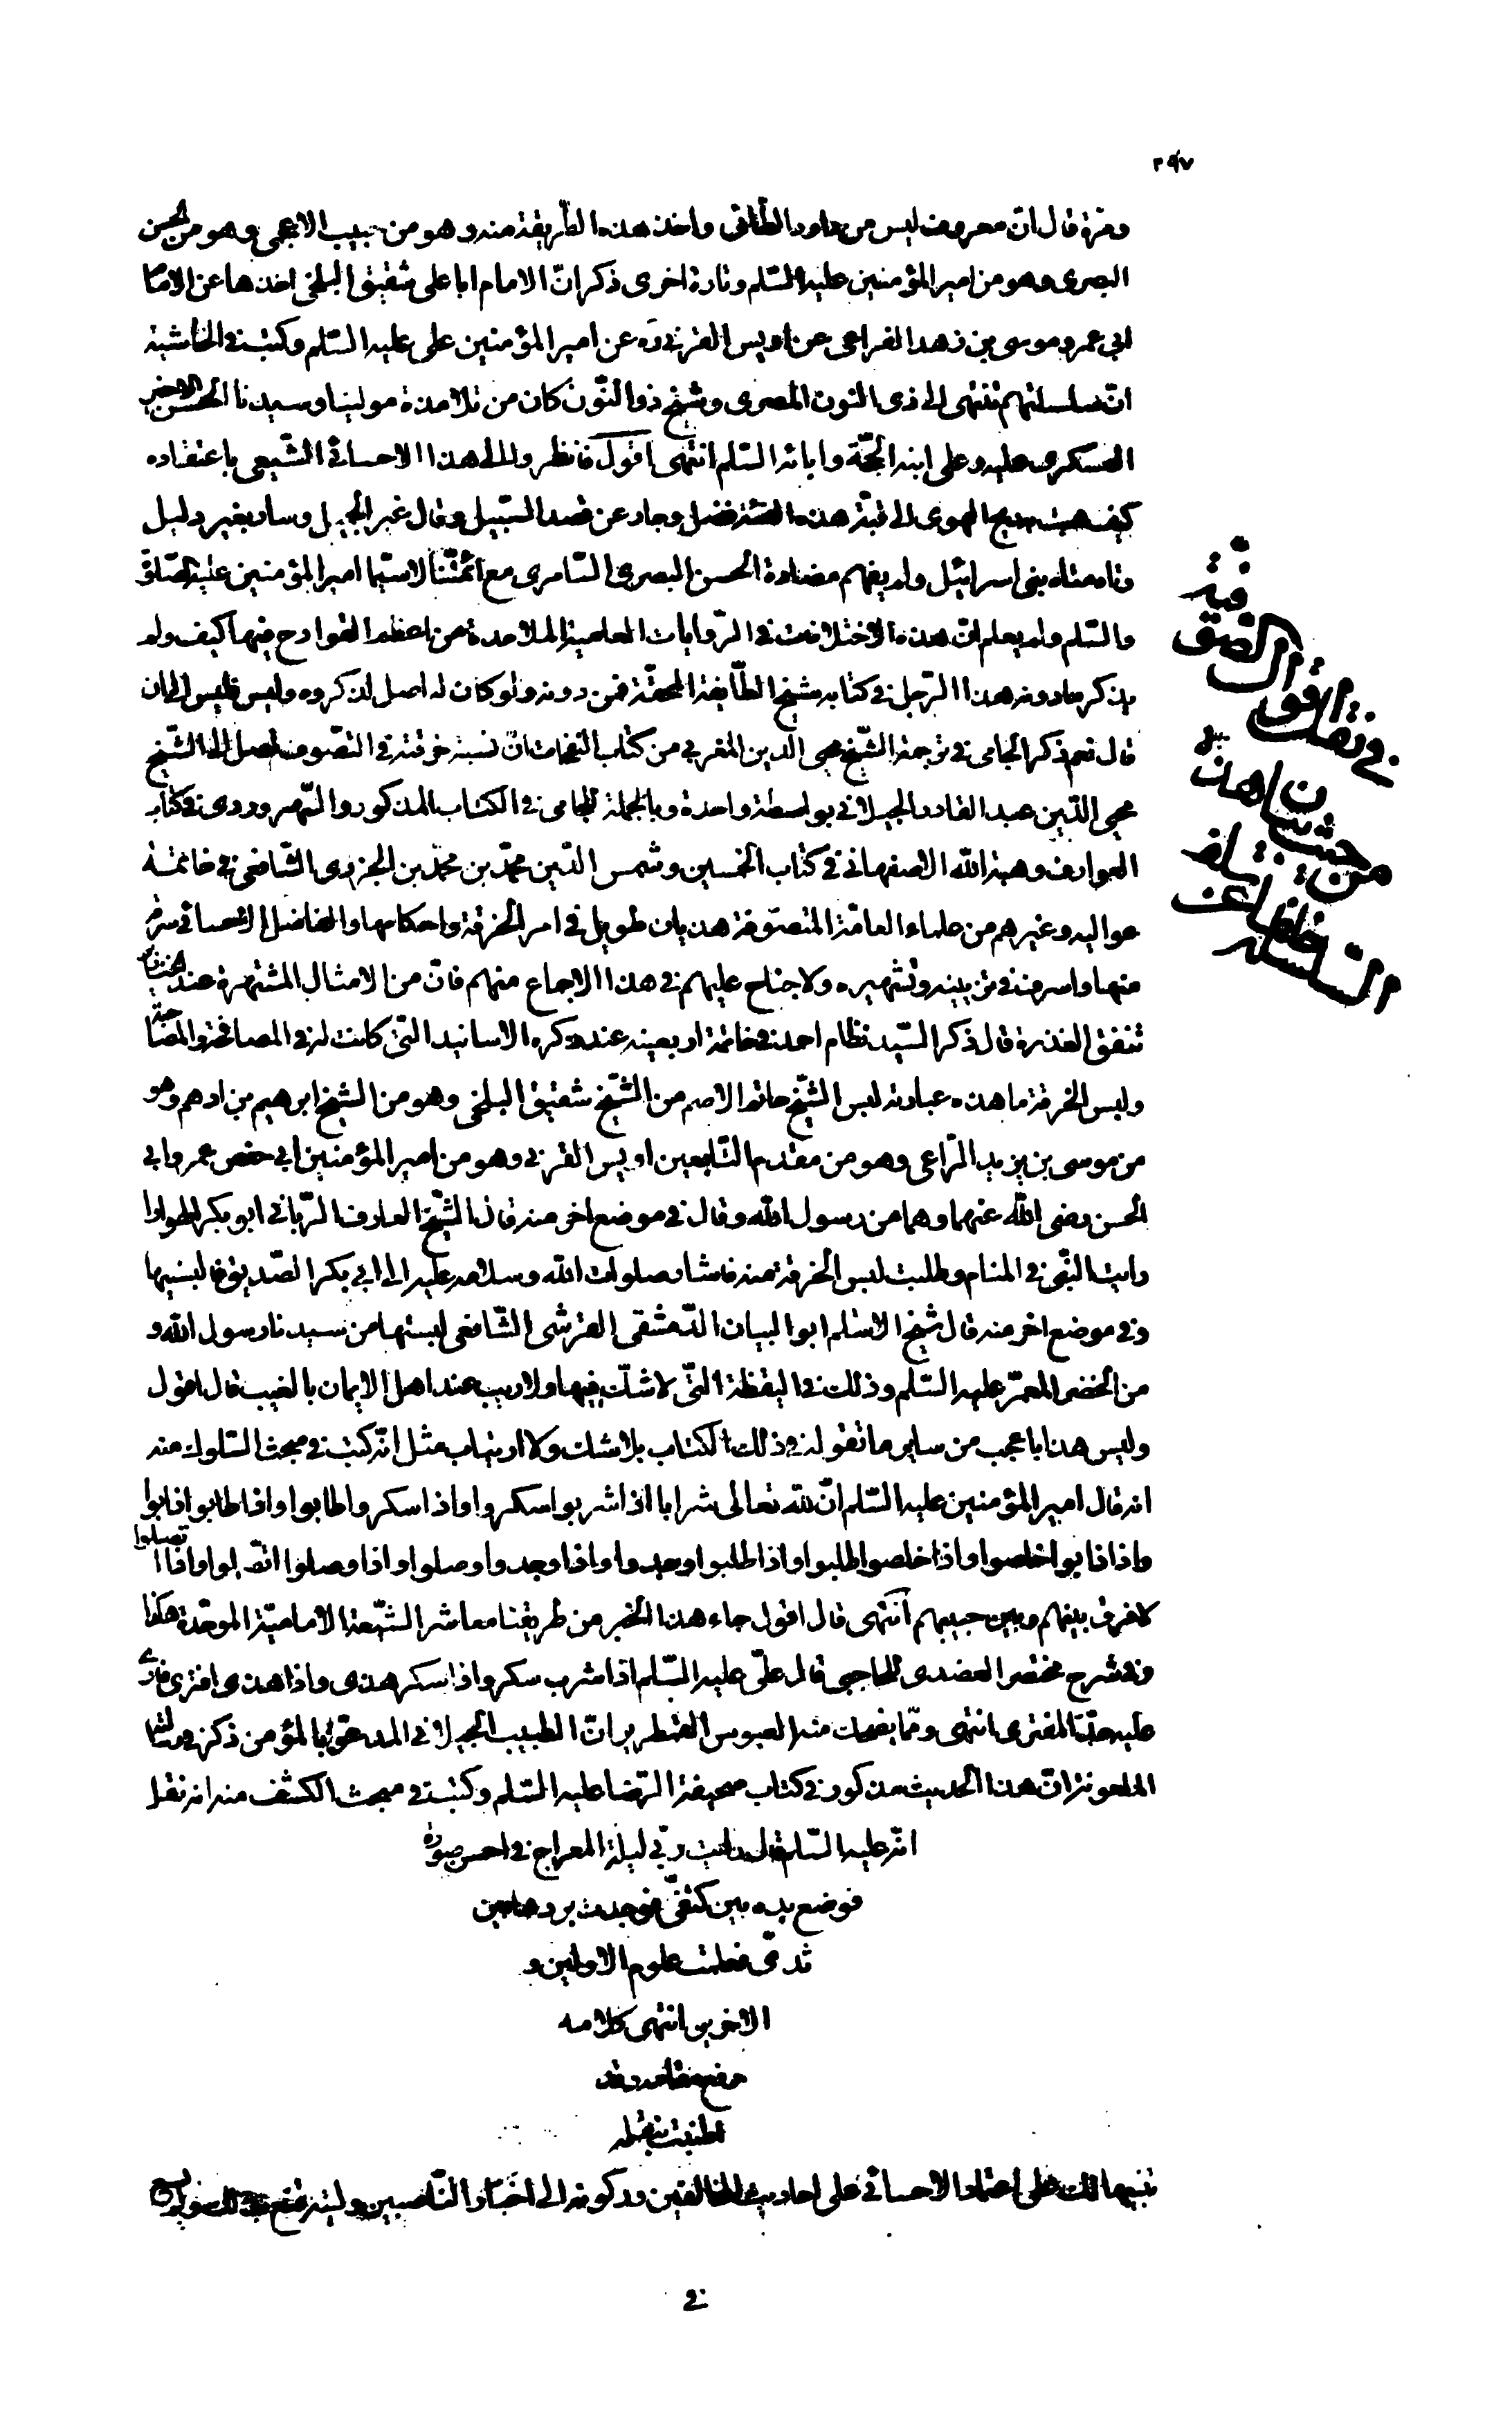 ٢٩٧
ومرة قال ان معروف لبس من داود الطائى واخذ هذه الطريقة منه وهو من حبيب الاعجمى وهو من الحسن
البصرى وهو من امير المؤمنين عليه السّلم وتارة اخرى ذكر انّ الامام ابا على شقيق البلخى اخذها عن الامام
ابى عمرو موسى بن زهد الراعى عن اويس القرنى ره عن امير المؤمنين على عليه السّلم وكتب فى الحاشية
انّ سلسلتهم تنتهى الى ذى النون المصرى وشيخ ذو النّون كان من تلامذة مولينا وسيدنا الحسن الاخير
العسكرى عليه وعلى ابنه الحجّة وابائه السّلم انتهى اقول فانظروا الى هذا الاحسائى الشّيعى باعتقاده
كيف هبت به ريح الهوى الى قبة هذه الفتنة فضل وجار عن قصد السّبيل وقال غير الجميل وسار بغير دليل
وتاه متاه بنى اسرائيل ولم يفهم مضادة الحسن البصرى السّامرى مع ائمّتنا لاسيّما امير المؤمنين عليه الصّلوة
والسّلم ولم يعلم انّ هذه الاختلافات فى الرّوايات العامية الملاحدة من اعظم القوادح فيها كيف ولم
يذكر ما دونه هذا الرّجل فى كتابه مشيخ الطّايفة المحقّة فمن دونه ولو كان له اصل لذكروه وليس فليس الى ان
قال نعم ذكر الجامى فى ترجمة الشّيخ محى الدين المغربى من كتاب النفحات انّ نسبة خرقته فى التصوف تصل الى الشّيخ
محيى الدّين عبد القادر الجيلانى بواسطة واحدة وبالجملة للجامى فى الكتاب المذكور والسّهروردى فى كتاب
العوارف وهبة الله الاصفهانى فى كتاب الخمسين وشمس الدّين محمّد بن محمّد بن الجزرى الشّافعى فى خاتمة
عواليه وغيرهم من علماء العامّة المتصوّفة هذيان طويل فى امر الخرقة واحكامها والفاضل الاحسائى سرق
منها واسرف فى تزيينه وتشهيره ولا جناح عليهم فى هذا الاجماع منهم فانّ من الامثال المشتهرة عند
تنفق العذرة قال ذكر السّيد نظام احمد فى خاتمة اربعينه عند ذكره الاسانيد التى كانت له فى المصافحة والمصاحبة
ولبس الخرقة ما هذه عبارته لبس الشّيخ حاتم الاصم من الشّيخ شقيق البلخى وهو من الشيخ ابرهيم بن ادهم وهو
من موسى بن يزيد الرّاعى وهو من مقدم التّابعين اويس القرنى وهو من امير المؤمنين ابى حفص عمر وابى
الحسن رضى الله عنهما وهما من رسول الله وقال فى موضع اخر منه قال الشّيخ العارف الرّبانى ابو بكر الهوارا
رايت النّبى فى المنام وطلبت لبس الخرقة منه فاشار صلوات الله وسلامه عليه الى ابى بكر الصّديق فالبسنيها
وفى موضع اخر منه قال شيخ الاسلم ابو البيان الدّمشقى القرشى الشّافعى لبستها من سيدنا رسول الله و
من الخضر المعمّر عليه السّلم وذلك فى اليقظة التى لا شكّ فيها ولا ريب عند اهل الايمان بالغيب قال اقول
وليس هذا باعجب من ساير ما تقوله فى ذلك الكتاب بلا شك ولا ارتياب مثل انّه كتب فى مبحث السّلوك منه
انه قال امير المؤمنين عليه السّلم انّ لله تعالى شرابا اذا شربوا سكروا واذا سكروا طابوا واذا طابوا ذابوا
واذا ذابوا خلصوا واذا خلصوا طلبوا واذا طلبوا وجدوا واذا وجدوا وصلوا واذا وصلوا اتّصلوا واذا اتصلوا
لا فرق بينهم وبين حبيبهم انتهى قال اقول جاء هذا الخبر من طريقنا معاشر الشّيعة الاماميّة الموحّدة هكذا
وفى شرح مختصر العضدى للحاجبى قال علىّ عليه السّلم اذا شرب سكر واذا سكر هذى واذا هذى افترى فارى
عليه حدّ المفترى انتهى وممّا يضحك منه العبوس القمطرير انّ الطبيب الجيلانى المدعوّ بالمؤمن ذكر فى رسالته
الملعونة انّ هذا الحديث مذكور فى كتاب صحيفة الرّضا عليه السّلم وكتب فى مبحث الكشف منه انه نقل
انّه عليه السّلم قال رايت ربّى ليلة المعراج فى احسن صورة
فوضع يده بين كتفىّ فوجدت بردها بين
ثدىّ فعلمت علوم الاولين و
الاخرين انتهى كلامه
رفع مقامه وقد
اطنبت بنقله
تنبيها لك على اعتماد الاحسائى على احاديث المخالفين وركونه الى اخبار النّاصبين وليته قنع بذلك
فى
فى نقل فرق الصّوفية
من حيث
السلسلة